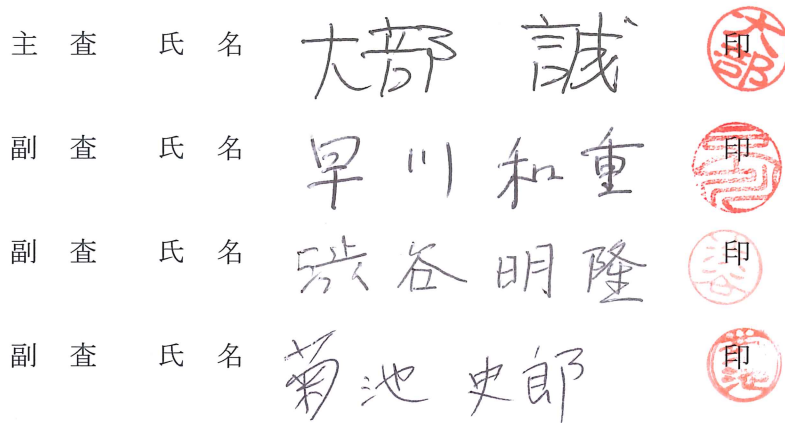 主 査 氏 名 大部 誠 印
副 査 氏 名 早川 和重 印
副 査 氏 名 渋谷 明隆 印
副 査 氏 名 菊池 史郎 印